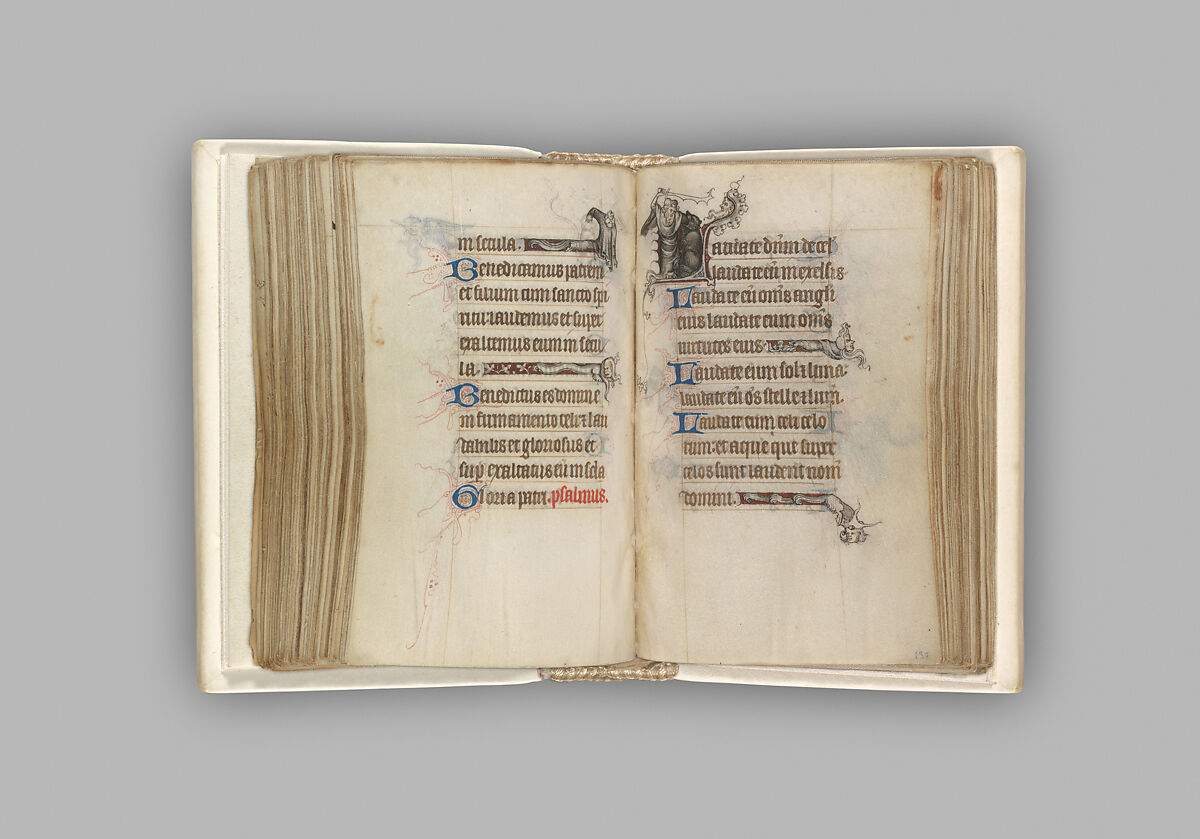 in secula.
Benedicamus patrem
et filium cum sancto spi
ritu: laudemus et super
exaltemus eum in secu
la.
Benedictus es domine
in firmamento celi ⁊ lau
dabilis et gloriosus et
sup̄ exaltatus eū in scl̄a
Gloria patri. psalmus.
Laudate dn̄m de cel̄
laudate eū in excelsis
Laudate eū om̄s angl̄i
eius laudate eum om̄s
uirtutes eius.
Laudate eum sol ⁊ luna:
laudate eū om̄s stelle ⁊ lum̄.
Laudate eum celi celo
rum: et aque que super
celos sunt laudent nom̄
domini.
137